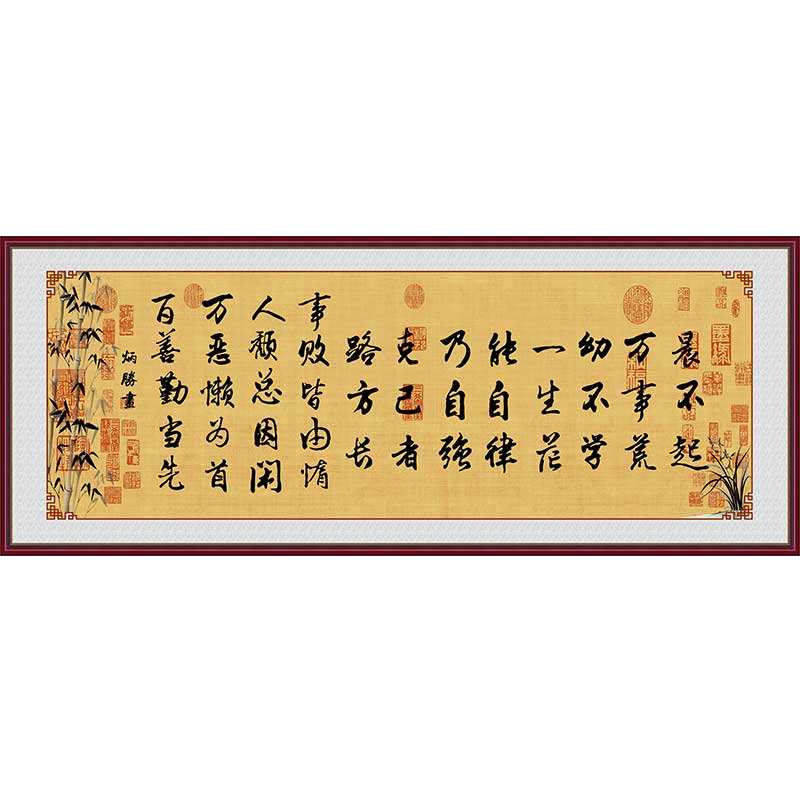 晨不起
万事荒
幼不学
一生茫
能自律
乃自强
克己者
路方长
事败皆由惰
人颓总因闲
万恶懒为首
百善勤当先
炳勝書